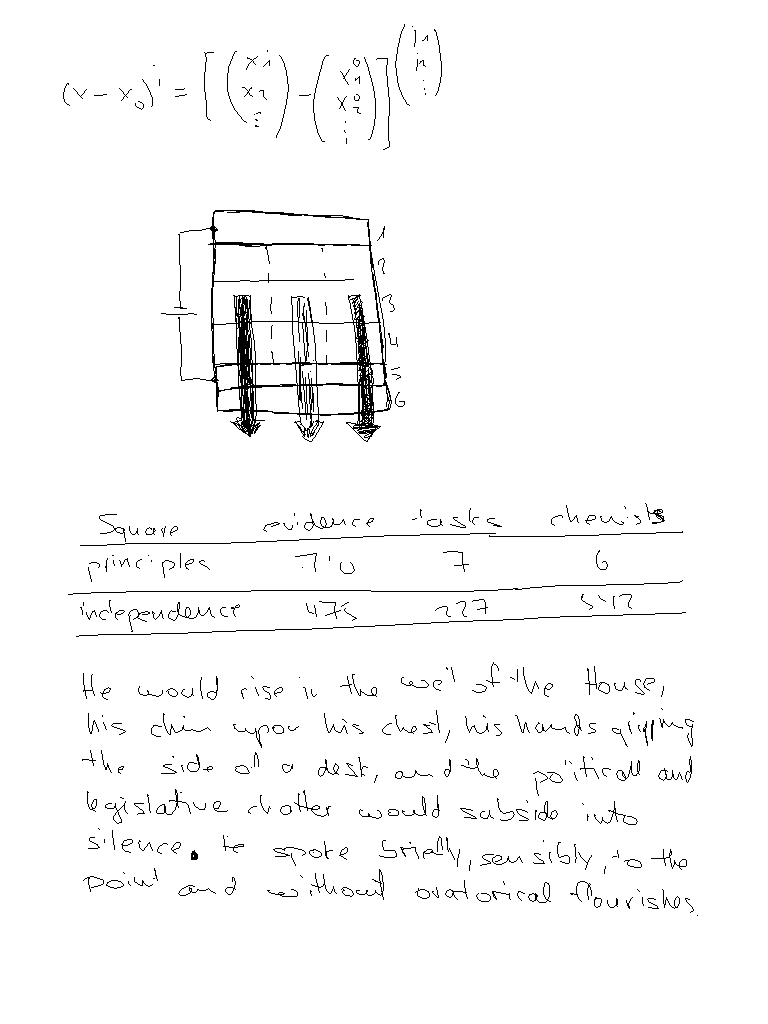 (x - x₀)ⁱ = [(x₁ x₂ ⋮) - (x₁⁰ x₂⁰ ⋮)]^(j₁ j₂ ⋮)
1
2
3
4
5
6
Square evidence tasks chemists
principles 7 6
independence 475 227
He would rise in the well of the House,
his chin upon his chest, his hands gripping
the side of a desk, and the political and
legislative chatter would subside into
silence. He spoke briefly, sensibly, to the
point and without oratorical flourishes.